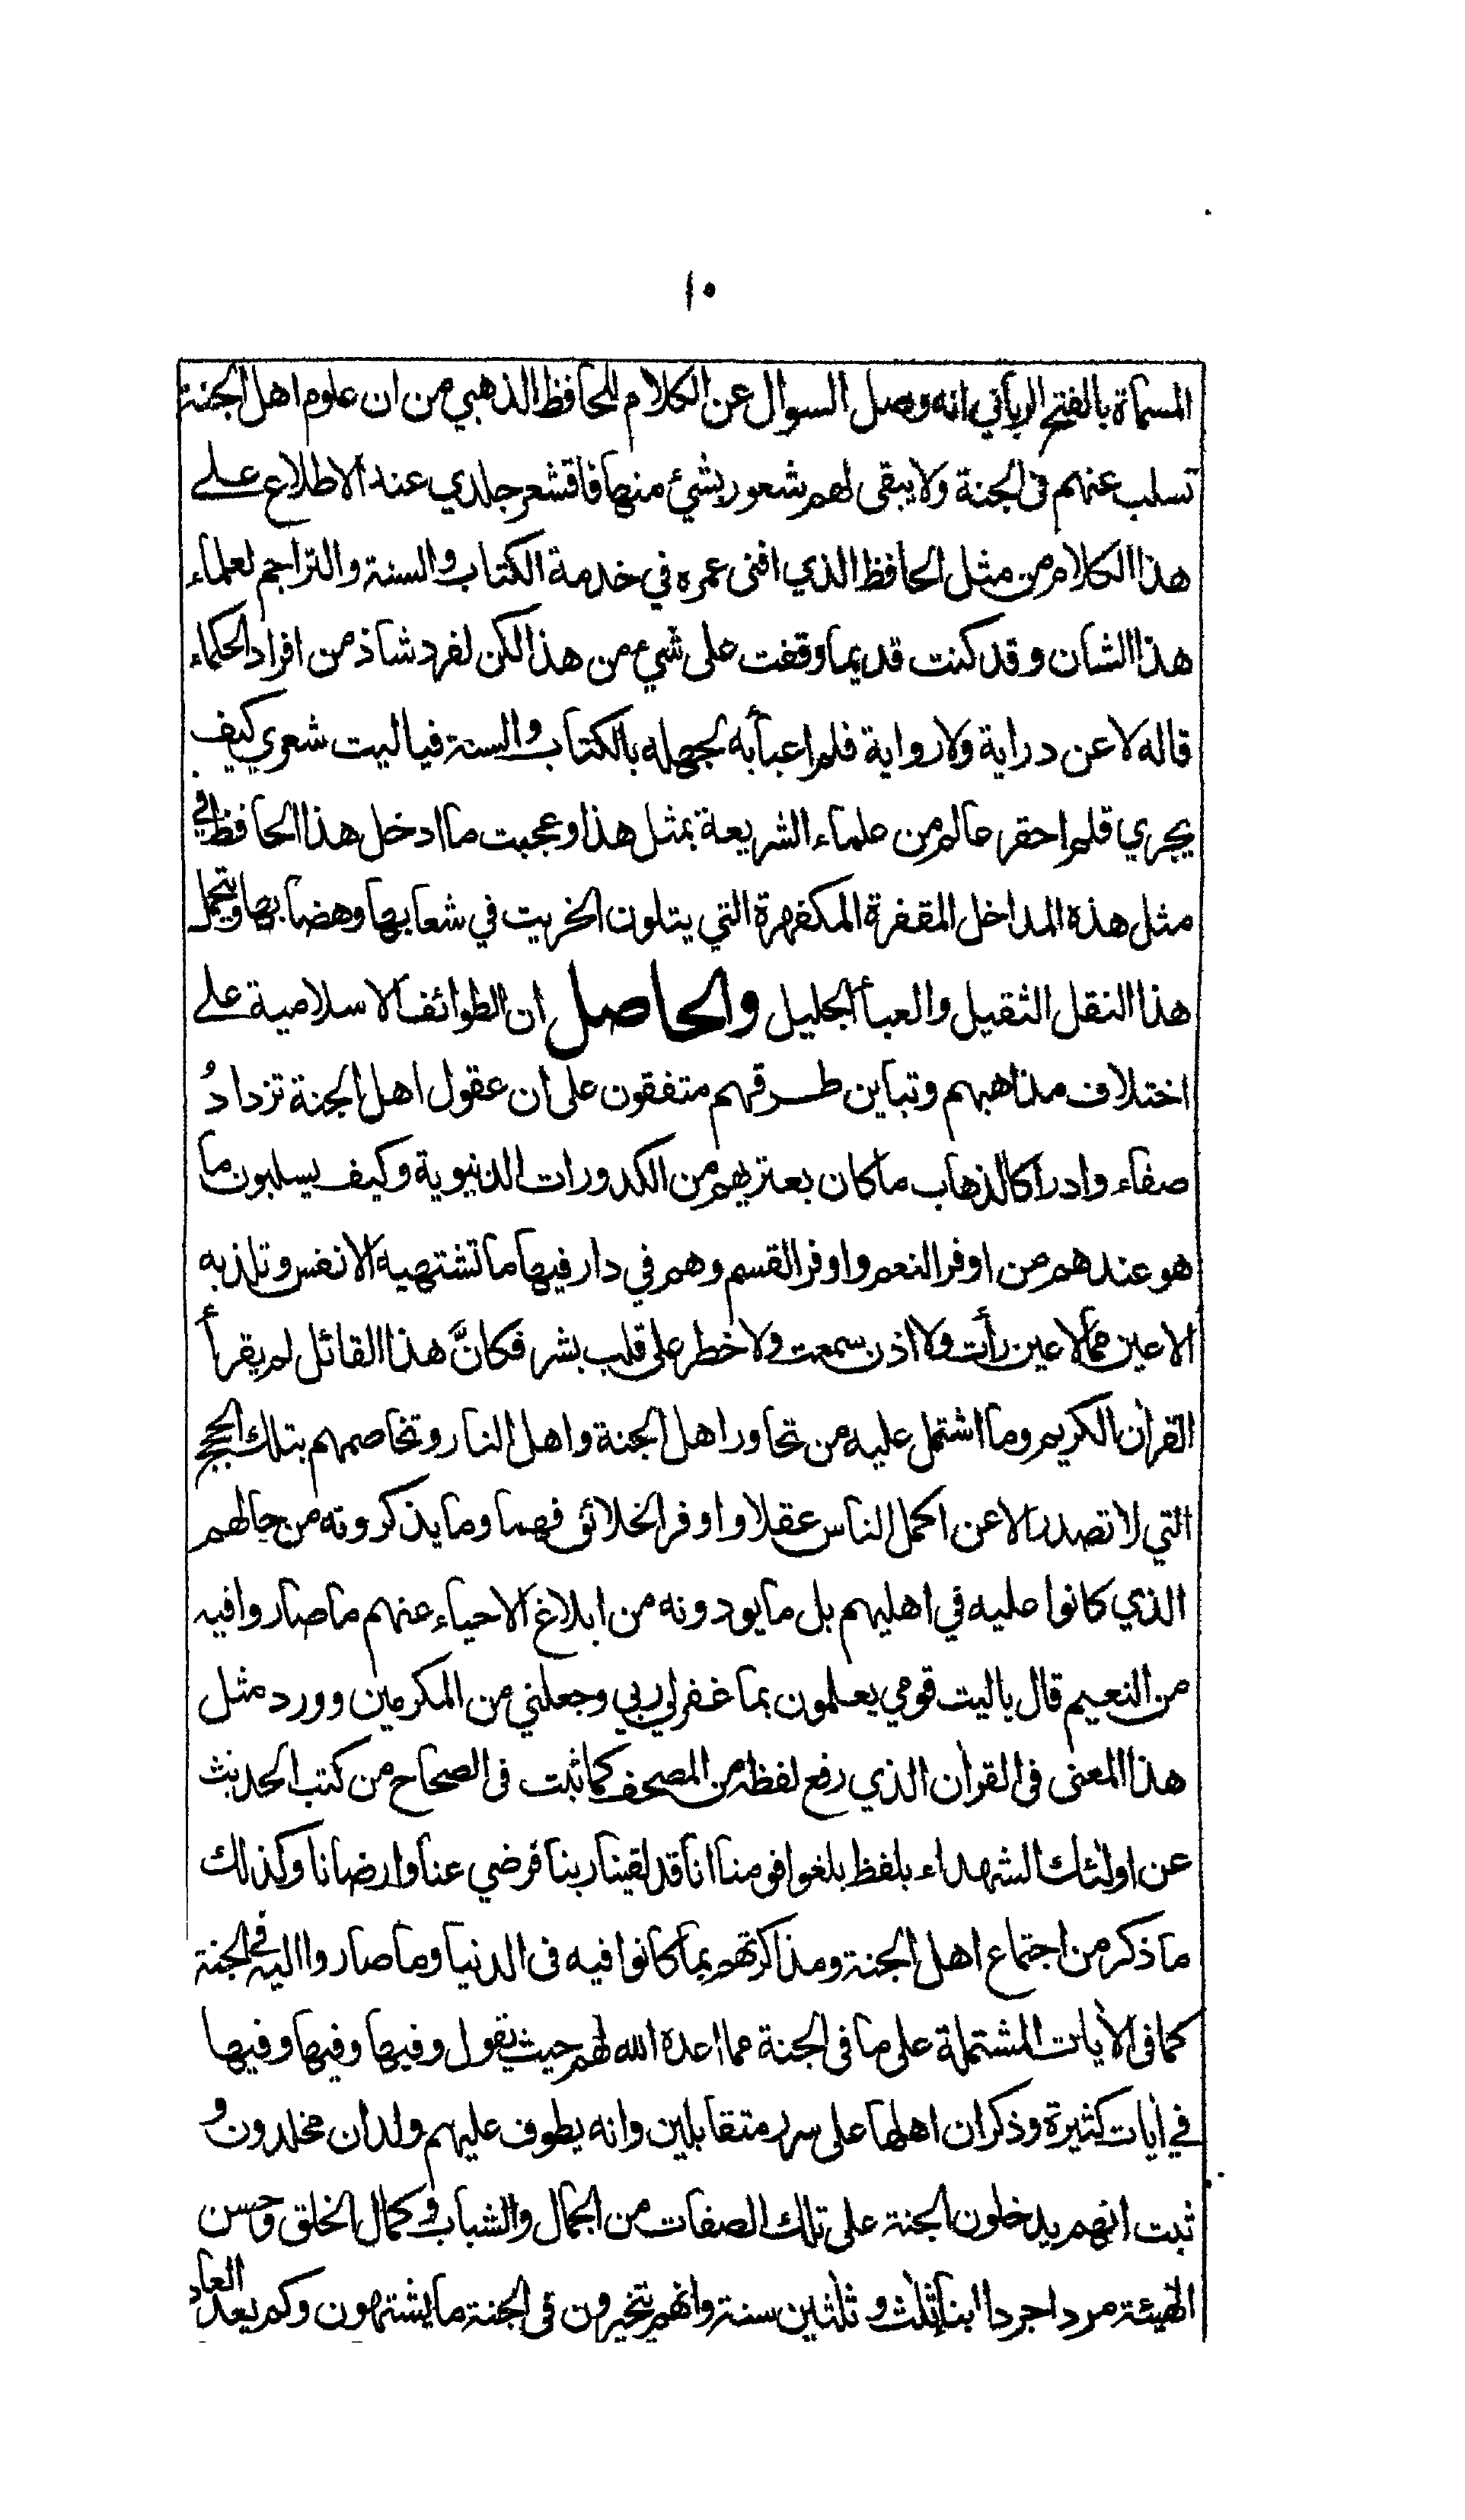 ١٠
المسماة بالفتح الرباني انه وصل السوال عن الكلام للحافظ الذهبي من ان علوم اهل الجنة
تسلب عنهم فى الجنة ولا يبقى لهم شعور بشئ منها فاقشعر جلدي عند الاطلاع على
هذا الكلام من مثل الحافظ الذي افنى عمره في خدمة الكتاب والسنة والتراجم لعلماء
هذا الشان وقد كنت قديما وقفت على شيء من هذا لكن لفرد شاذ من افراد الحكماء
قاله لا عن دراية ولا رواية فلم اعبأ به لجهله بالكتاب والسنة فياليت شعري كيف
يجري قلم احقر عالم من علماء الشريعة بمثل هذا وعجبت ما ادخل هذا الحافظ في
مثل هذه المداخل المقفرة المكفهرة التي يتلون الخريت في شعابها وهضابها ويتحمل
هذا النقل الثقيل والعبأ الجليل والحاصل ان الطوائف الاسلامية على
اختلاف مذاهبهم وتباين طرقهم متفقون على ان عقول اهل الجنة تزدادُ
صفاء وادراكا لذهاب ما كان يعتريهم من الكدورات الدنيوية وكيف يسلبون ما
هو عندهم من اوفر النعم واوفر القسم وهم في دار فيها ما تشتهيه الانفس وتلذ به
الاعين مما لا عين رأت ولا اذن سمعت ولا خطر على قلب بشر فكانَّ هذا القائل لم يقرأ
القران الكريم وما اشتمل عليه من تحاور اهل الجنة واهل النار وتخاصمهم بتلك الحجج
التي لا تصدر الا عن اكمل الناس عقلا واوفر الخلائق فهما وما يذكرونه من حالهم
الذي كانوا عليه في اهليهم بل ما يودونه من ابلاغ الاحياء عنهم ما صاروا فيه
من النعيم قال ياليت قومي يعلمون بما غفر لي ربي وجعلني من المكرمين وورد مثل
هذا المعنى فى القران الذي رفع لفظه من المصحف كما ثبت فى الصحاح من كتب الحديث
عن اولئك الشهداء بلفظ بلغوا قومنا انا قد لقينا ربنا فرضي عنا وارضانا وكذلك
ما ذكر من اجتماع اهل الجنة ومذاكرتهم بما كانوا فيه فى الدنيا وما صاروا اليه فى الجنة
كما فى الأيات المشتملة على ما فى الجنة مما اعده الله لهم حيث يقول وفيها وفيها وفيها
في أيات كثيرة وذكر ان اهلها على سرر متقابلين وانه يطوف عليهم ولدان مخلدون و
ثبت انهم يدخلون الجنة على تلك الصفات من الجمال والشباب وكمال الخلق وحسن
الهيئة مردا جردا ابناء ثلث وثلثين سنة وانهم يتخيرون فى الجنة ما يشتهون وكم يعد العاد